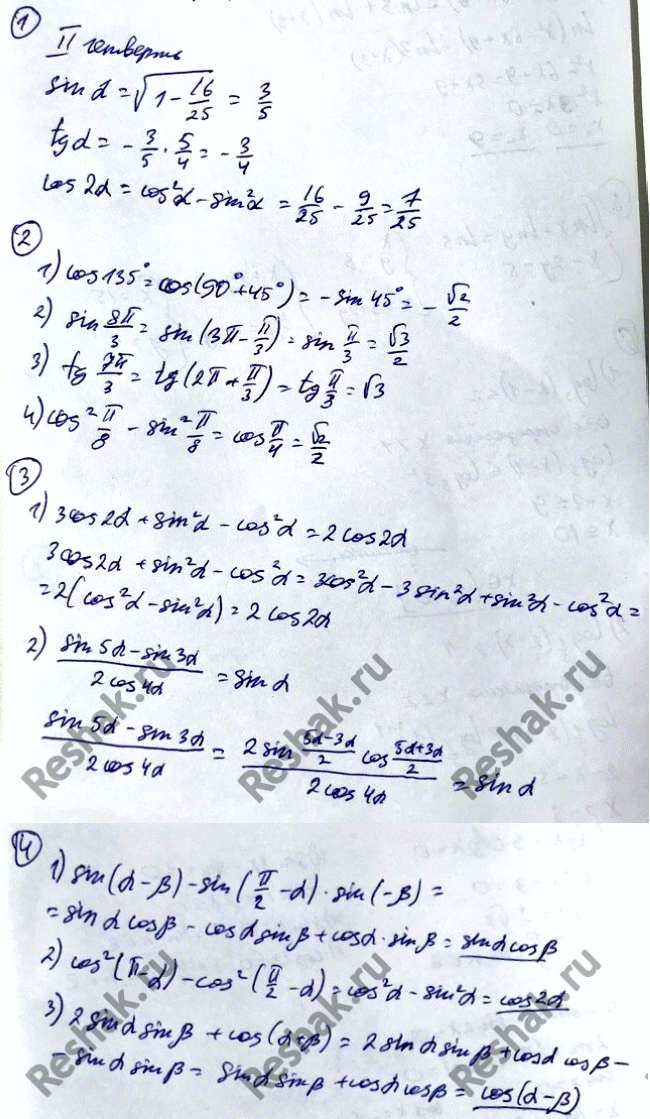 1
II четверть
sin α = √(1 − 16/25) = 3/5
tg α = − 3/5 · 5/4 = − 3/4
cos 2α = cos²α − sin²α = 16/25 − 9/25 = 7/25
2
1) cos 135° = cos(90° + 45°) = − sin 45° = − √2/2
2) sin 8π/3 = sin (3π − π/3) = sin π/3 = √3/2
3) tg 7π/3 = tg (2π + π/3) = tg π/3 = √3
4) cos² π/8 − sin² π/8 = cos π/4 = √2/2
3
1) 3cos2α + sin²α − cos²α = 2cos2α
3cos2α + sin²α − cos²α = 3cos²α − 3sin²α + sin²α − cos²α =
= 2(cos²α − sin²α) = 2cos2α
2) (sin 5α − sin 3α)/(2cos 4α) = sin α
(sin 5α − sin 3α)/(2cos 4α) = (2 sin (5α−3α)/2 cos (5α+3α)/2)/(2cos 4α) = sin α
4
1) sin(α − β) − sin(π/2 − α) · sin(−β) =
= sin α cos β − cos α sin β + cos α · sin β = sin α cos β
2) cos²(π − α) − cos²(π/2 − α) = cos²α − sin²α = cos2α
3) 2 sin α sin β + cos(α + β) = 2 sin α sin β + cos α cos β −
− sin α sin β = sin α sin β + cos α cos β = cos(α − β)
Reshak.ru
Reshak.ru
Reshak.ru
Reshak.ru
Reshak.ru
Reshak.ru